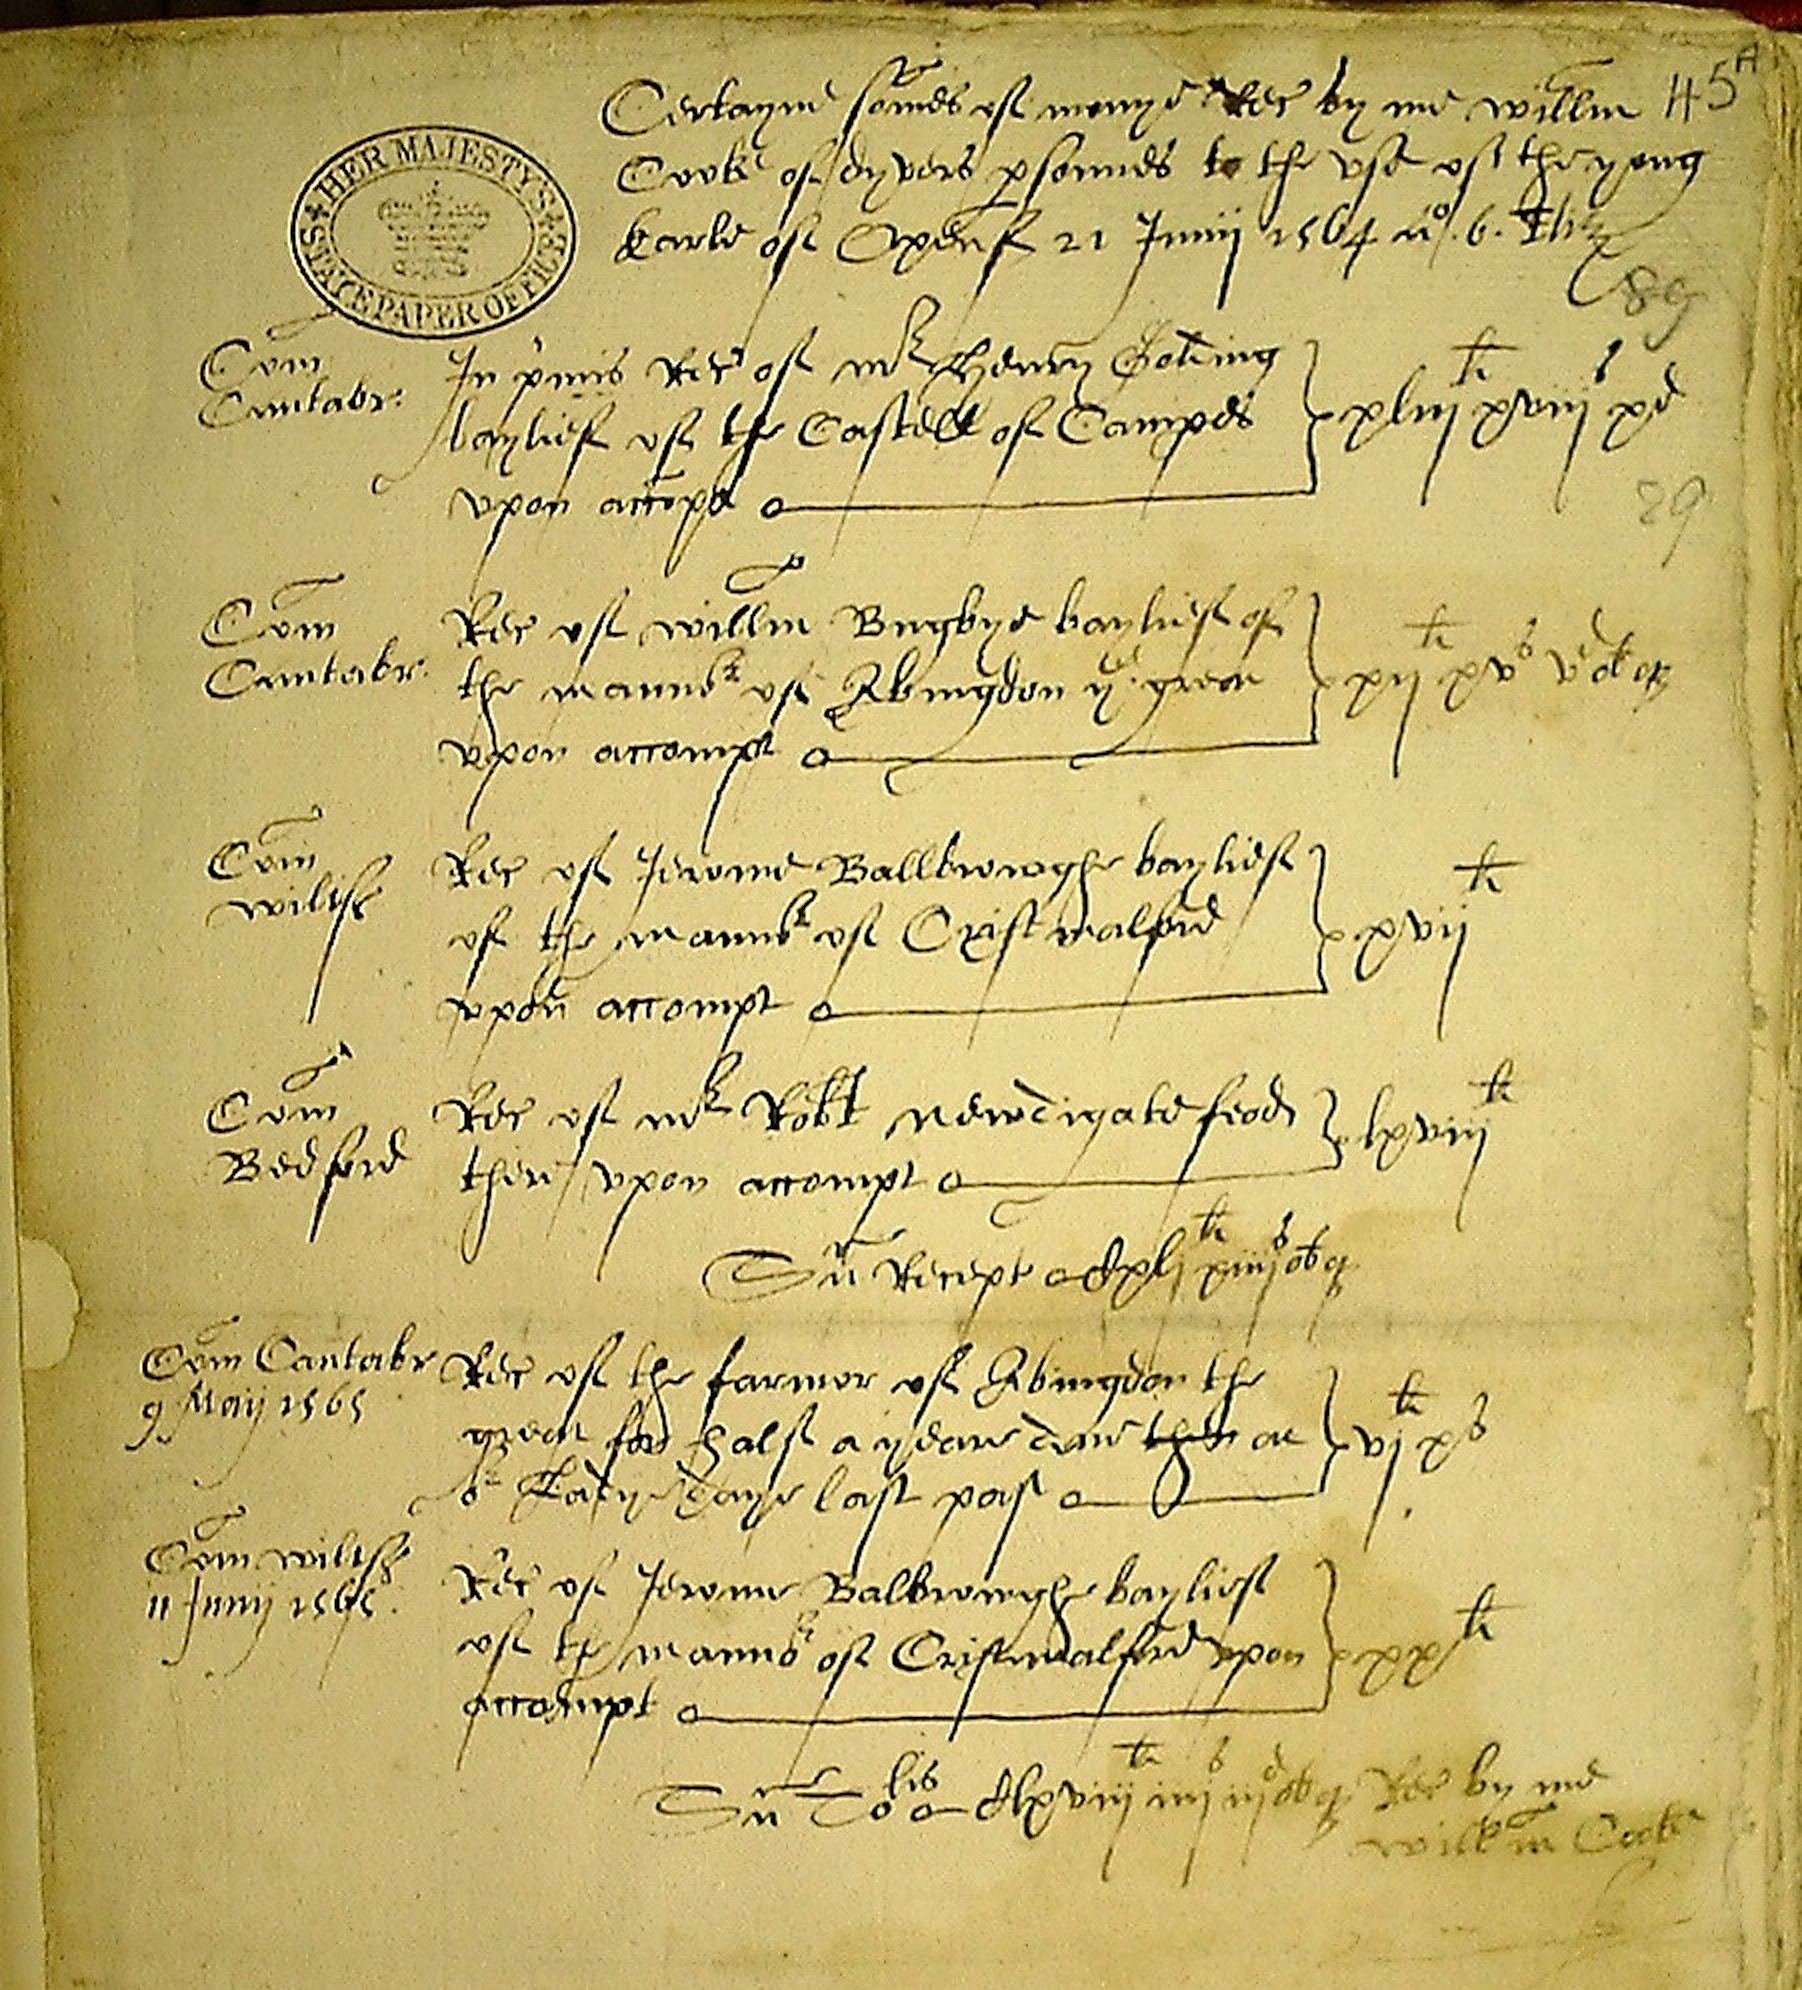 Certayne somes of monye Rec by me willm 45 A
Cooke of dyvers psonnes to the vse of the yong
Earle of Oxenf 21 Junij 1564 ao. 6. Eliz
89
HER MAJESTY'S STATE PAPER OFFICE
Com Cantabr.
In pmis Rec of mr Henry Goldng
baylief of the Castell of Campes
vpon accompt
xliij li xviij s xd
29
Com Cantabr.
Rec of willm Bugbye baylief of
the mannor of Abingdon ye great
vpon accompt
xij li xv s v d ob q
Com wiltsh
Rec of Jerome Ballbrowghe baylief
of the mannor of Cristmalford
vpon accompt
xvij li
Com Bedford
Rec of mr Robt Newdigate feod
there vpon accompt
lxviij li
Sm Recept Cxlj li xiiij s ob q
Com Cantabr
9 Maij 1565
Rec of the farmor of Abingdon the
great for half a yeare due then at
or Ladye daye last past
vj li x s
Com wiltsh
11 Junij 1565.
Rec of Jerome Balbrowghe baylief
of the mannor of Cristmalford vpon
accompt
xx li
Sm Tolis Clxviij li iiij s iij d ob q Rec by me
willm Cooke